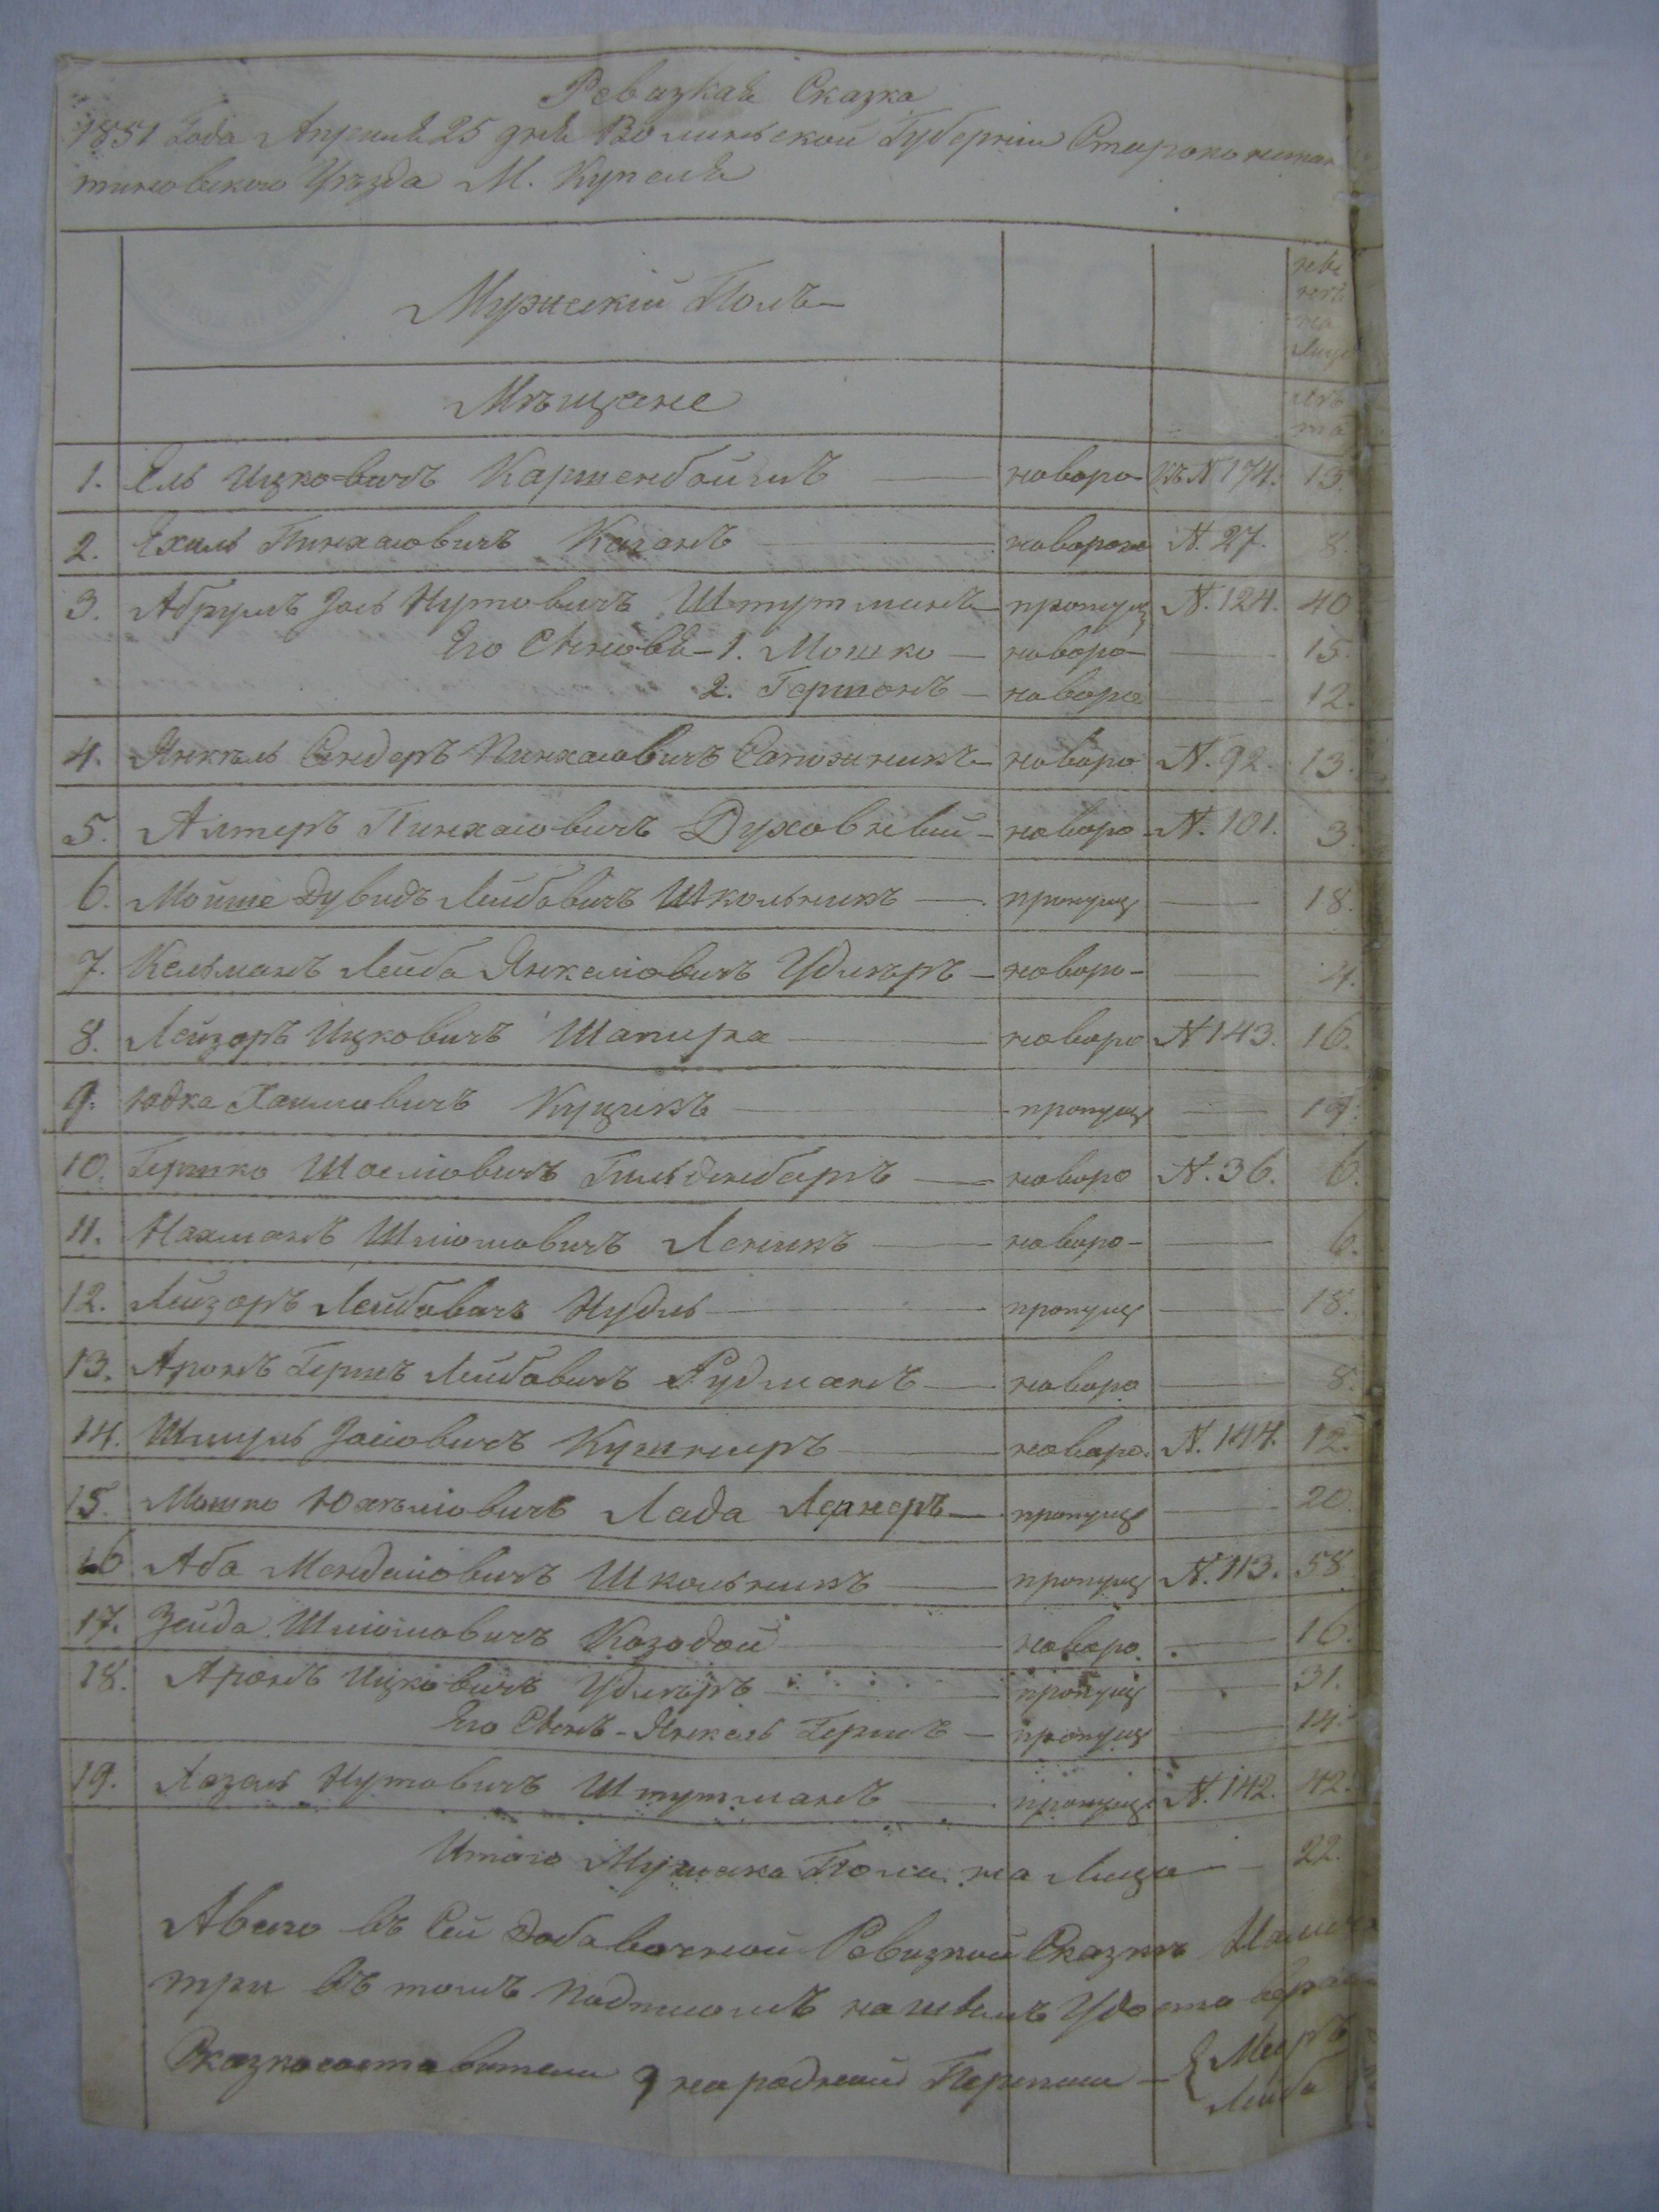 Ревизкая Сказка
1851 Года Апреля 25 дня Волыньской Губернiи Старокон
тиновского Уезда М. Купеля
Мужескiй Полъ
Мѣщане
1. Ель Ицковичъ Картенбоймъ — новоро въ N 174. 13.
2. Ехиль Пинхасовичъ Казанъ — новорож N. 27. 8.
3. Абрумъ Зось Нутовичъ Штутманъ — пропущ N. 124. 40
Его Сыновья 1. Мошко — новоро — 15.
2. Гершонъ — новоро — 12.
4. Янкѣль Сендеръ Пинхасовичъ Сапожникъ — новоро N. 92. 13.
5. Алтеръ Пинхасовичъ Духовный — новоро N. 101. 3.
6. Мойше Дувидъ Лейбовичъ Школьникъ — пропущ — 18.
7. Кельманъ Лейба Янкелiовичъ Удлеръ — новоро — 4.
8. Лейзоръ Ицковичъ Шапира — новоро N 143. 16.
9. Юдка Хаимовичъ Куцикъ — пропущ — 19.
10. Гершко Шаелiовичъ Гильденбаръ — новоро N. 36. 6.
11. Нахманъ Шлiомовичъ Леникъ — новоро — 6.
12. Лейзоръ Лейбовичъ Нудль — пропущ — 18.
13. Аронъ Гершъ Лейбовичъ Рудманъ — новоро — 8.
14. Шмуль Зосiовичъ Кушниръ — новоро. N. 144. 12.
15. Мошко Юхѣлiовичъ Лада Лернеръ — пропущ — 20.
16 Аба Мендалiовичъ Школьникъ — пропущ N. 113. 58.
17. Зейда Шлiомовичъ Козодой — новоро. — 16.
18. Аронъ Ицковичъ Удлеръ — пропущ — 31.
Его Сынъ - Янкель Гершъ — пропущ — 14.
19. Хазель Нутовичъ Штутманъ — пропущ N. 142. 42.
Итого Мужска Пола на Лицо — 22.
А всего въ Сей Добавочной Ревизкой Сказки
три въ томъ Подписомъ нашымъ
Сказкосоставители 9 народной Переписи — { Меиръ
Лейба